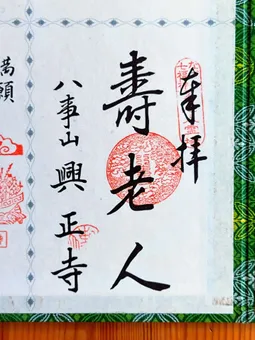 奉拝
壽老人
八事山興正寺
満願